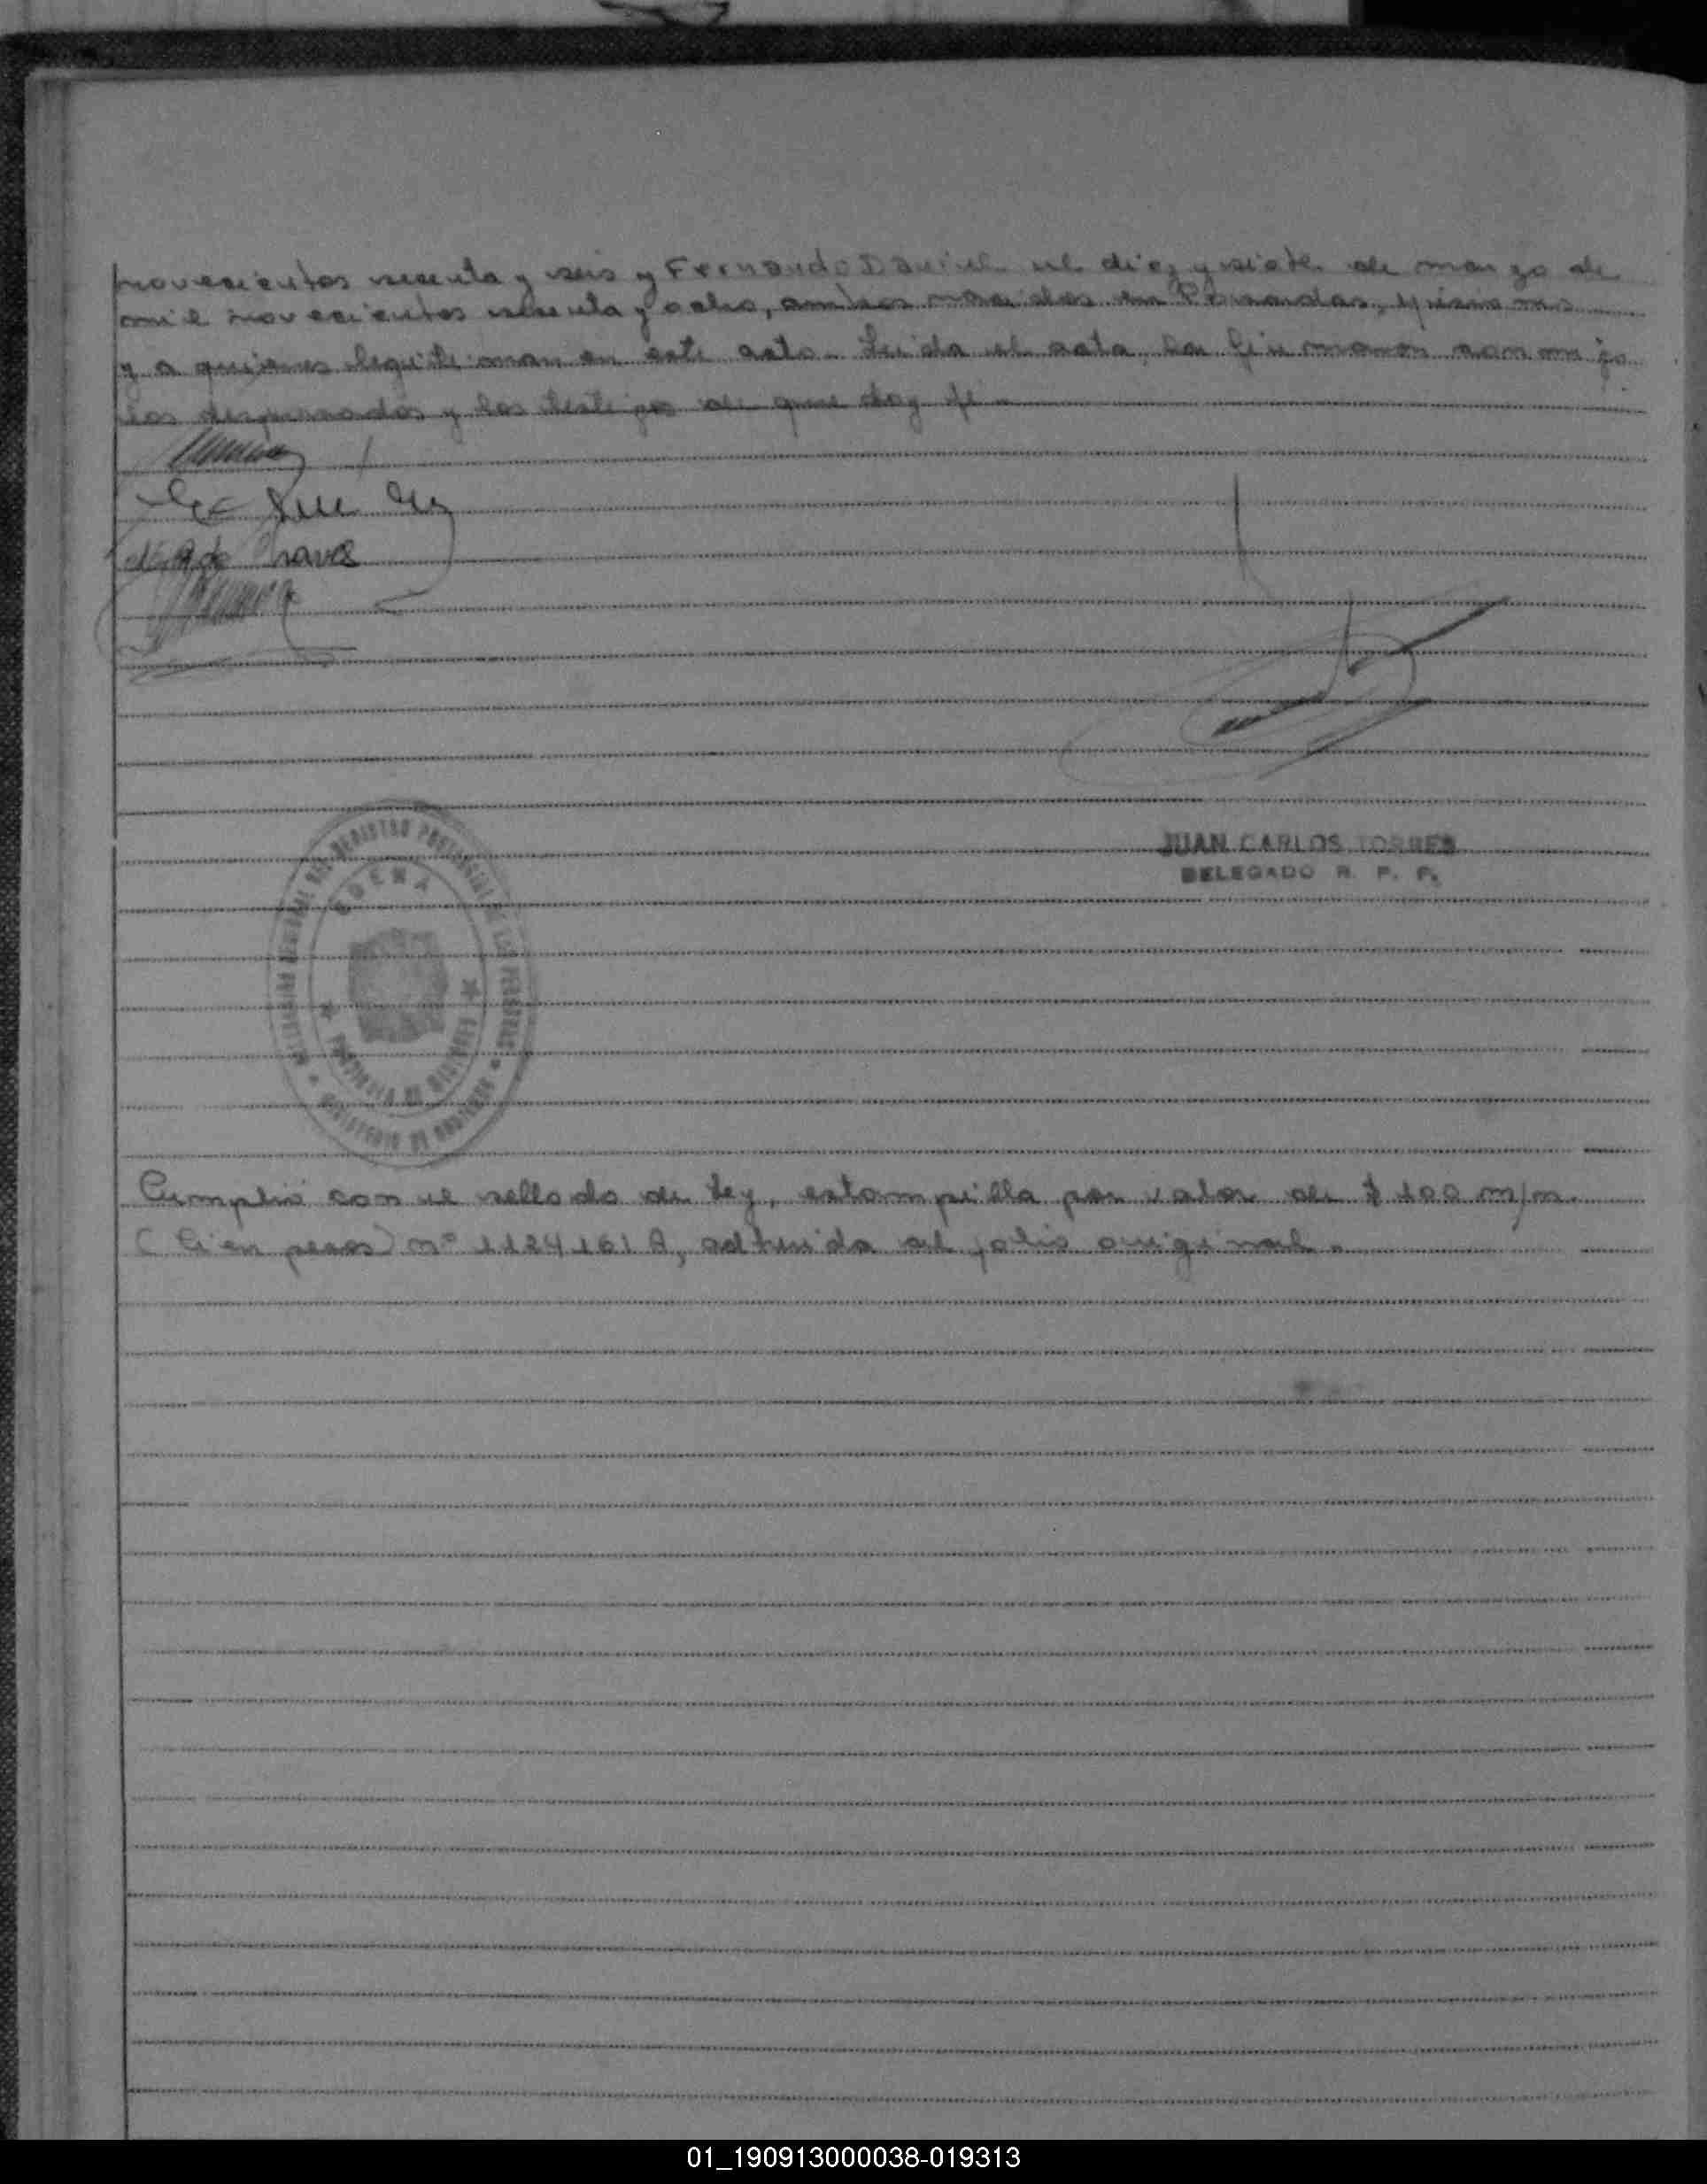 novecientos sesenta y seis y Fernando Daniel el diez y siete de marzo de
mil novecientos sesenta y ocho, ambos nacidos en Posadas, Misiones
y a quienes legitiman en este acto. Leida el acta, la firmaron conmigo
los desposados y los testigos de que doy fe.
de Chaves
JUAN CARLOS TORRES
DELEGADO R. P. P.
REGISTRO PROVINCIAL DE LAS PERSONAS
PROVINCIA DE MISIONES
Cumplió con el sellado de Ley, estampilla por valor de $ 100 m/n.
(Cien pesos) nº 1124161 A, adherida al folio original.
01_190913000038-019313